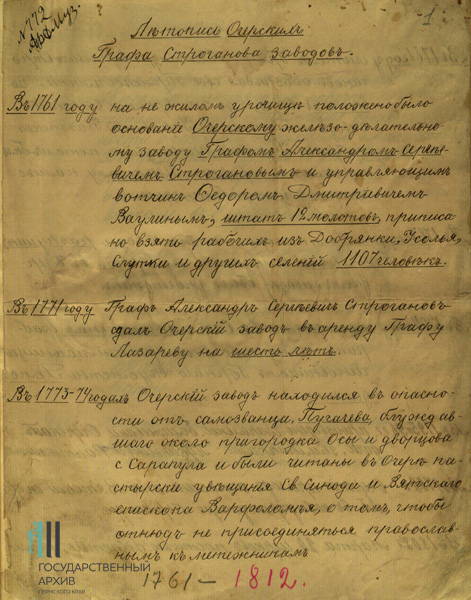 № 772
1
Лѣтопись Очерскимъ
Графа Строганова заводовъ.
Въ 1761 году на не жиломъ урочищѣ положено было
основаніе Очерскому желѣзо-дѣлательно
му заводу Графомъ Александромъ Сергѣе
вичемъ Строгановымъ и управляющимъ
вотчинъ Ѳедоромъ Дмитріевичемъ
Ваулинымъ, штатъ 12 молотовъ, приписа
но взяты рабочихъ изъ Добрянки, Усолья,
Слутки и другихъ селеній 1107 человѣкъ.
Въ 1771 году Графъ Александръ Сергѣевичъ Строгановъ
сдалъ Очерскій заводъ въ аренду Графу
Лазареву на шесть лѣтъ.
Въ 1773-74 годахъ Очерскій заводъ находился въ опасно
сти отъ самозванца Пугачева, блуждав
шаго около пригородка Осы и дворцова
с. Сарапула и были читаны въ Очерѣ па
стырскія увѣщанія Св. Синода и Вятскаго
епископа Варфоломея, о томъ, чтобы
отнюдь не присоединяться православ
нымъ къ мятежникамъ
1761 — 1812.
ГОСУДАРСТВЕННЫЙ
АРХИВ
ПЕРМСКОГО КРАЯ